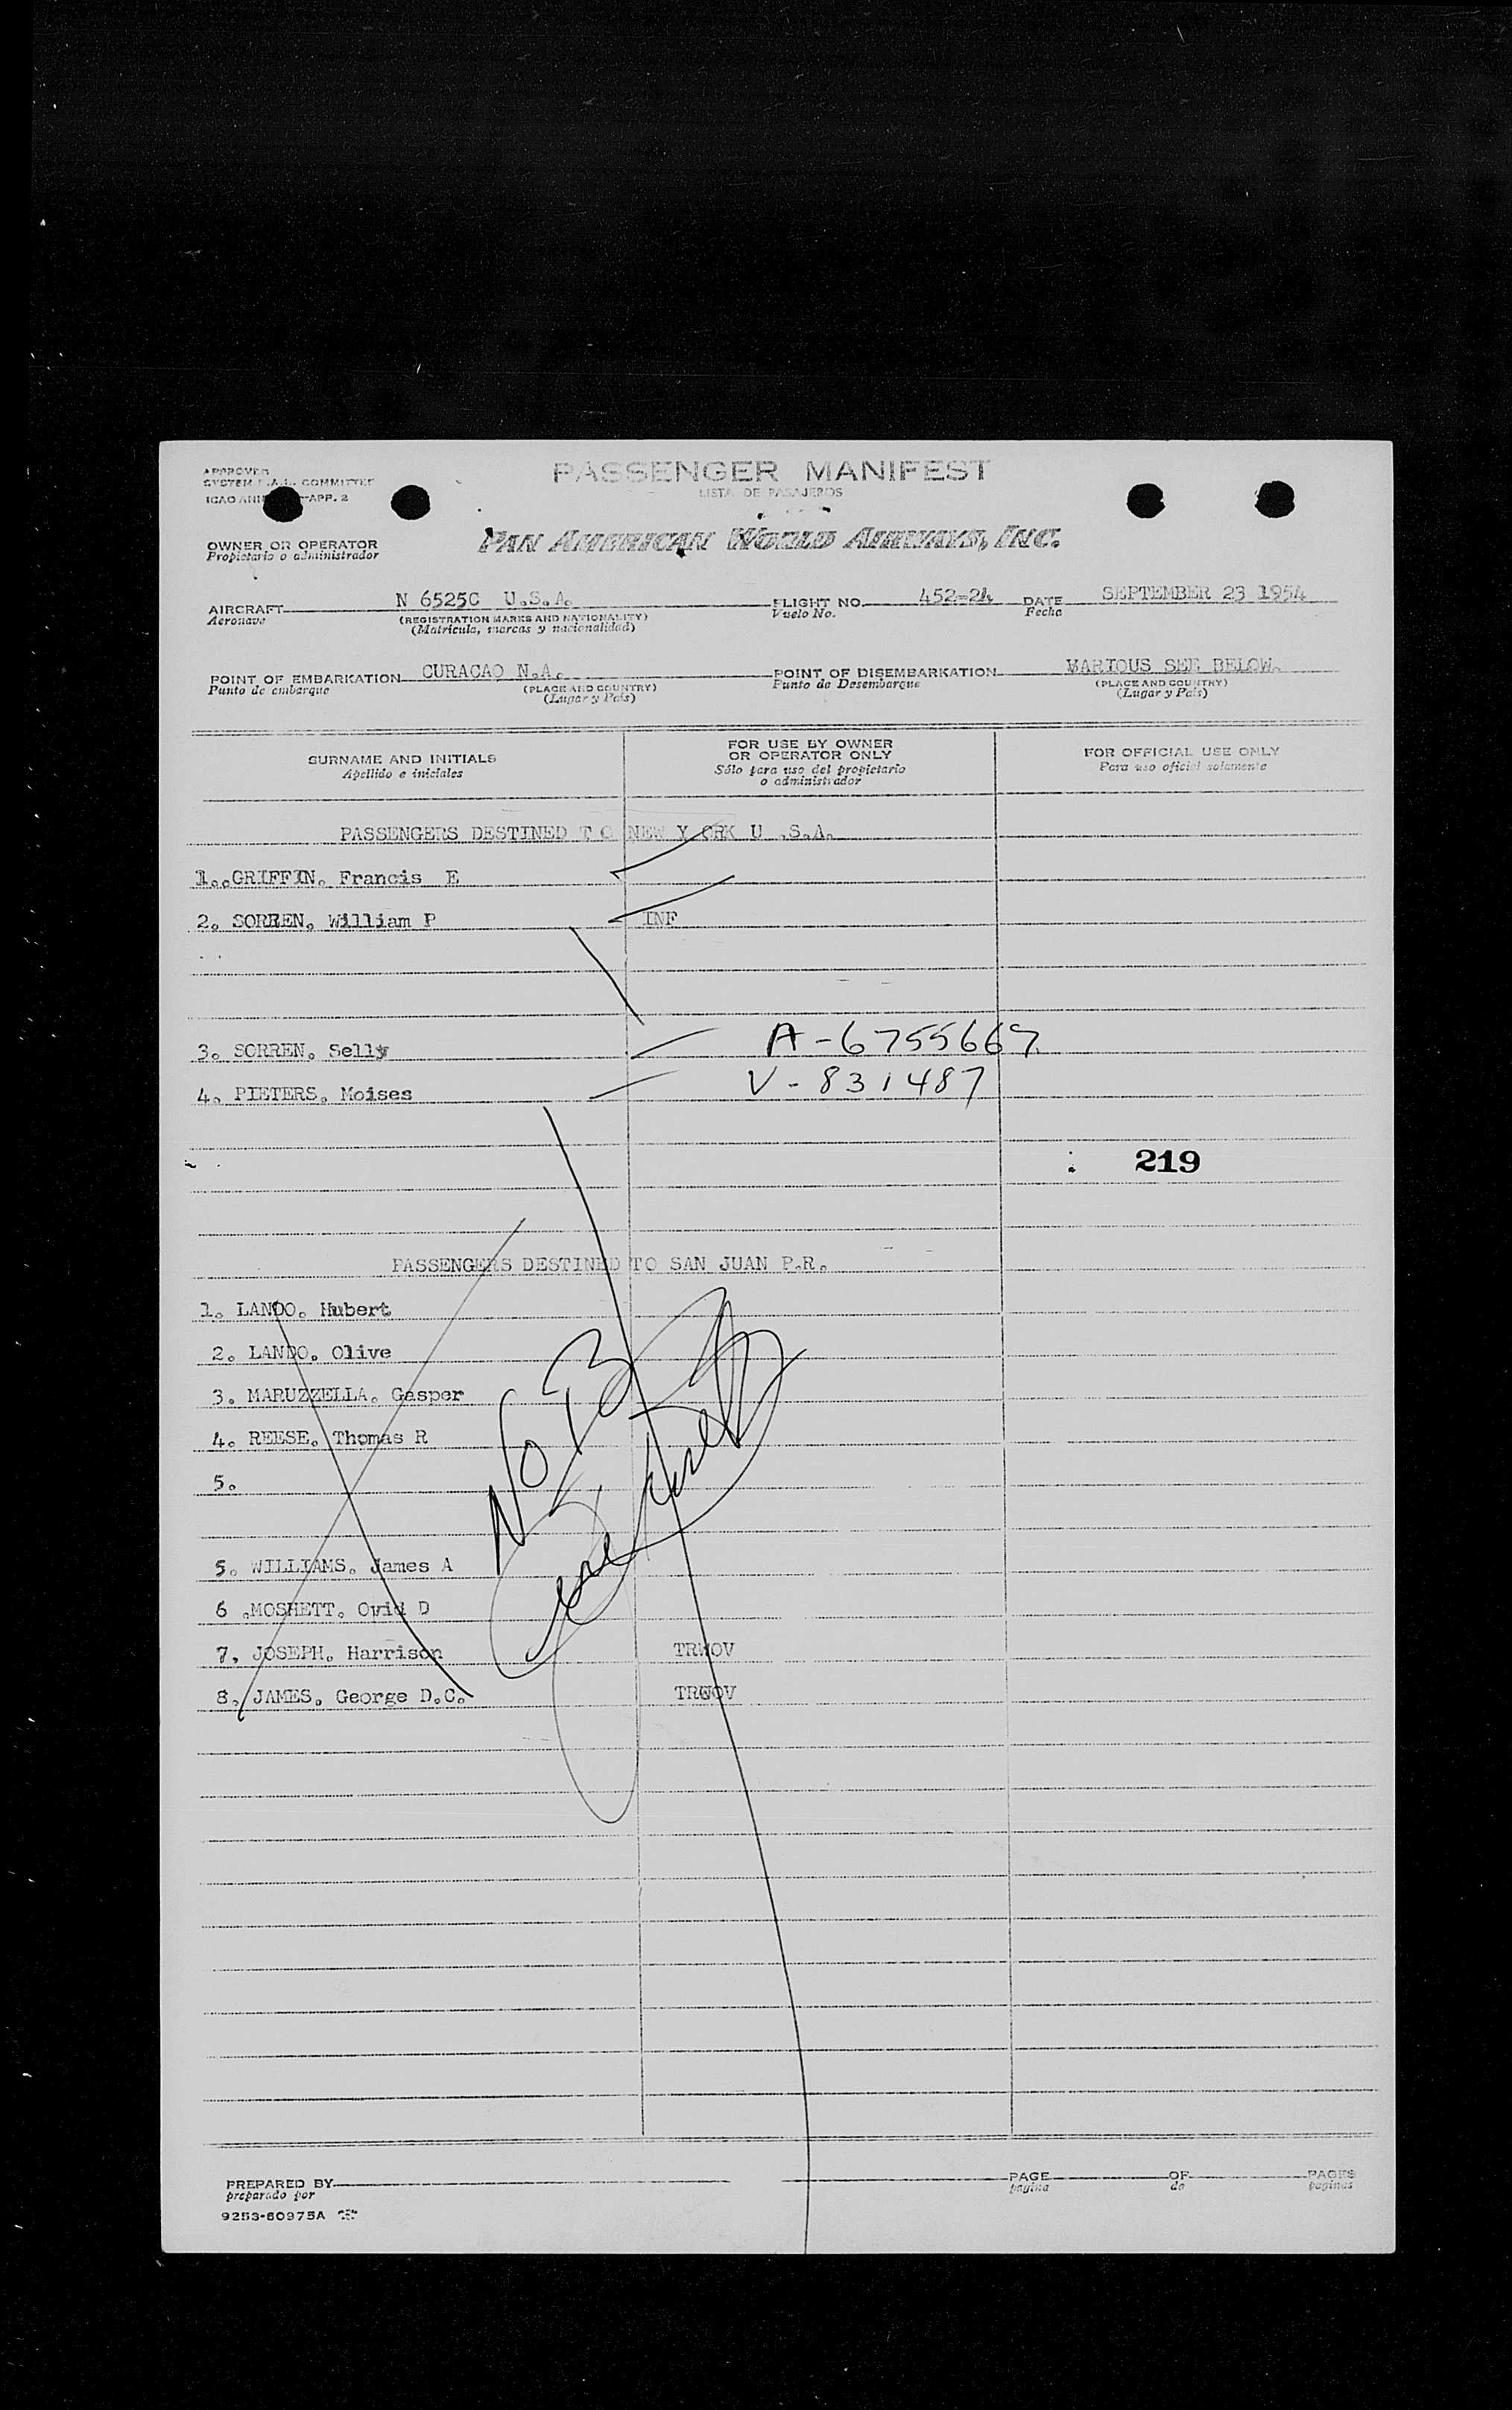 APPROVED
SYSTEM F.A.L. COMMITTEE
ICAO APP. 2
PASSENGER MANIFEST
LISTA DE PASAJEROS
OWNER OR OPERATOR
Propietario o administrador
PAN AMERICAN WORLD AIRWAYS, INC.
AIRCRAFT N 6525C U.S.A. FLIGHT NO. 452-24 DATE SEPTEMBER 23 1954
Aeronave (REGISTRATION MARKS AND NATIONALITY) Vuelo No. Fecha
(Matricula, marcas y nacionalidad)
POINT OF EMBARKATION CURACAO N.A. POINT OF DISEMBARKATION VARIOUS SEE BELOW.
Punto de embarque (PLACE AND COUNTRY) Punto de Desembarque (PLACE AND COUNTRY)
(Lugar y País) (Lugar y País)
SURNAME AND INITIALS FOR USE BY OWNER OR OPERATOR ONLY FOR OFFICIAL USE ONLY
Apellido e iniciales Sólo para uso del propietario o administrador Para uso oficial solamente
PASSENGERS DESTINED T O NEW Y ORK U .S.A.
1..GRIFFIN. Francis E
2. SORREN. William P INF
3. SORREN. Selly A-6755667
4. PIETERS. Moises V-831487
219
PASSENGERS DESTINED TO SAN JUAN P.R.
1. LANDO. Hubert
2. LANDO. Olive
3. MARUZZELLA. Gasper
4. REESE. Thomas R
5.
No
5. WILLIAMS. James A
6 .MOSHETT. Ovid D
7, JOSEPH. Harrison
8. JAMES. George D.C.
PREPARED BY PAGE OF PAGES
preparado por página de paginas
9253-60975A